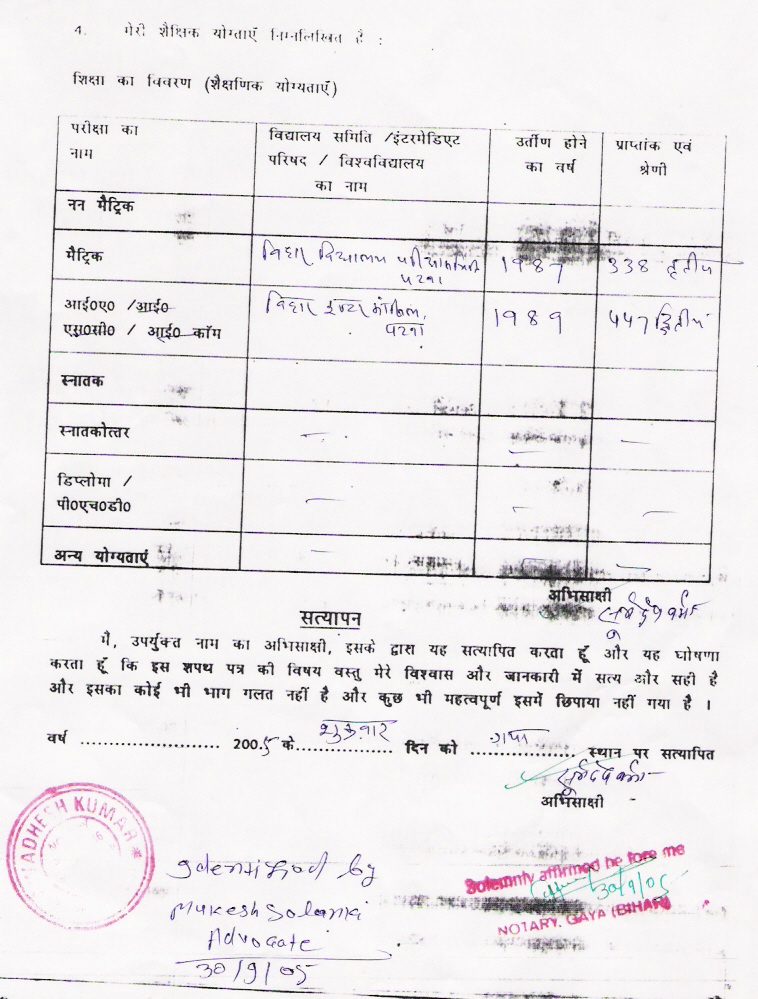 4. मेरी शैक्षिक योग्ताएँ निम्नलिखित है :
शिक्षा का विवरण (शैक्षणिक योग्यताएँ)
परीक्षा का नाम
विद्यालय समिति /इंटरमेडिएट परिषद / विश्वविद्यालय का नाम
उर्तीण होने का वर्ष
प्राप्तांक एवं श्रेणी
नन मैट्रिक
मैट्रिक
बिहार विद्यालय परीक्षा समिति
पटना
1987
338 तृतीय
आई०ए० /आई०
एस०सी० / आई० कॉम
बिहार इन्टर कौंसिल,
पटना
1989
447 द्वितीय
स्नातक
स्नातकोत्तर
— — —
डिप्लोमा /
पी०एच०डी०
— — —
अन्य योग्यताएं
— — —
अभिसाक्षी
सत्यापन
मैं, उपर्युक्त नाम का अभिसाक्षी, इसके द्वारा यह सत्यापित करता हूँ और यह घोषणा
करता हूँ कि इस शपथ पत्र की विषय वस्तु मेरे विश्वास और जानकारी में सत्य और सही है
और इसका कोई भी भाग गलत नहीं है और कुछ भी महत्वपूर्ण इसमें छिपाया नहीं गया है ।
वर्ष ........................ 200.5 के शुक्रवार दिन को गया स्थान पर सत्यापित
अभिसाक्षी
ADHESH KUMAR
Identified by
Mukesh Solanki
Advocate
30/9/05
Solemnly affirmed be fore me
30/9/05
NOTARY. GAYA (BIHAR)